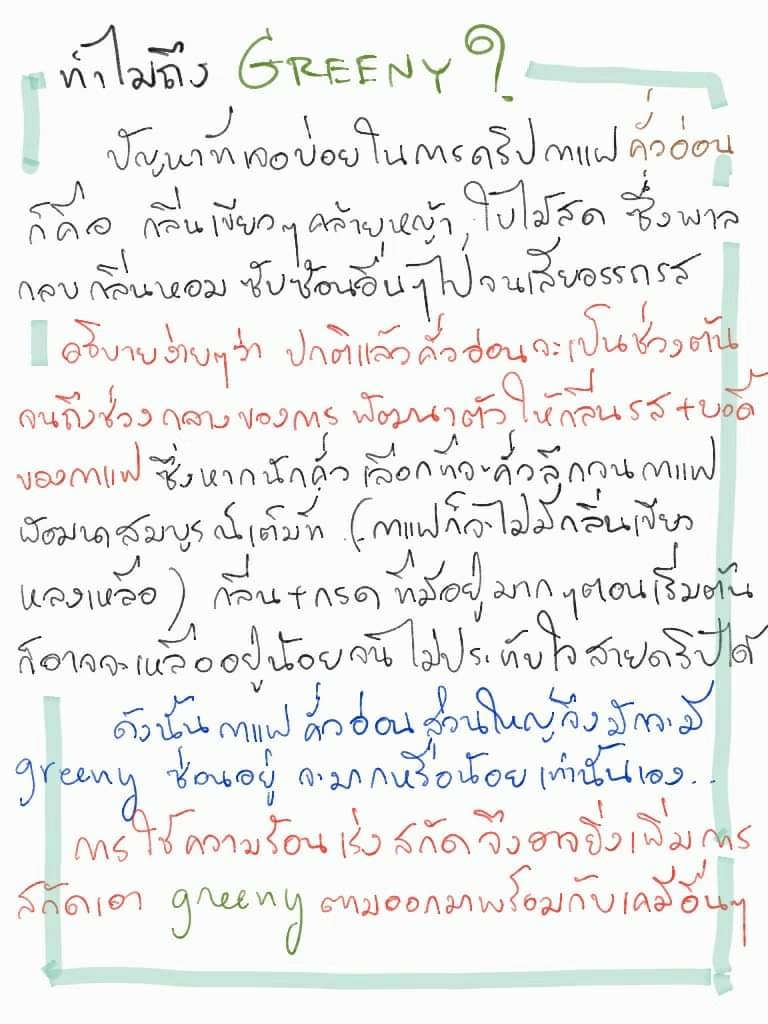 ทำไมถึง GREENY?
ปัญหาที่เจอบ่อยในการดริปกาแฟ คั่วอ่อน
ก็คือ กลิ่นเขียวๆ คล้ายหญ้า, ใบไม้สด ซึ่งพาล
กลบกลิ่นหอม ซับซ้อนอื่นๆ ไป จนเสียอรรถรส
อธิบายง่ายๆว่า ปกติแล้วคั่วอ่อนจะเป็นช่วงต้น
จนถึงช่วงกลางของการ พัฒนาตัว ให้กลิ่นรส+บอดี้
ของกาแฟ ซึ่งหากนักคั่ว เลือกที่จะคั่วลึกจนกาแฟ
พัฒนาสมบูรณ์เต็มที่ (กาแฟก็จะไม่มีกลิ่นเขียว
หลงเหลือ) กลิ่น+กรด ที่มีอยู่มากๆตอนเริ่มต้น
ก็อาจจะเหลืออยู่น้อยจนไม่ประทับใจสายดริปได้
ดังนั้น กาแฟ คั่วอ่อนส่วนใหญ่จึงมักจะมี
greeny ซ่อนอยู่ จะมากหรือน้อย เท่านั้นเอง..
การใช้ความร้อน เร่งสกัด จึงอาจยิ่งเพิ่มการ
สกัดเอา greeny ตามออกมาพร้อมกับเคมีอื่นๆ